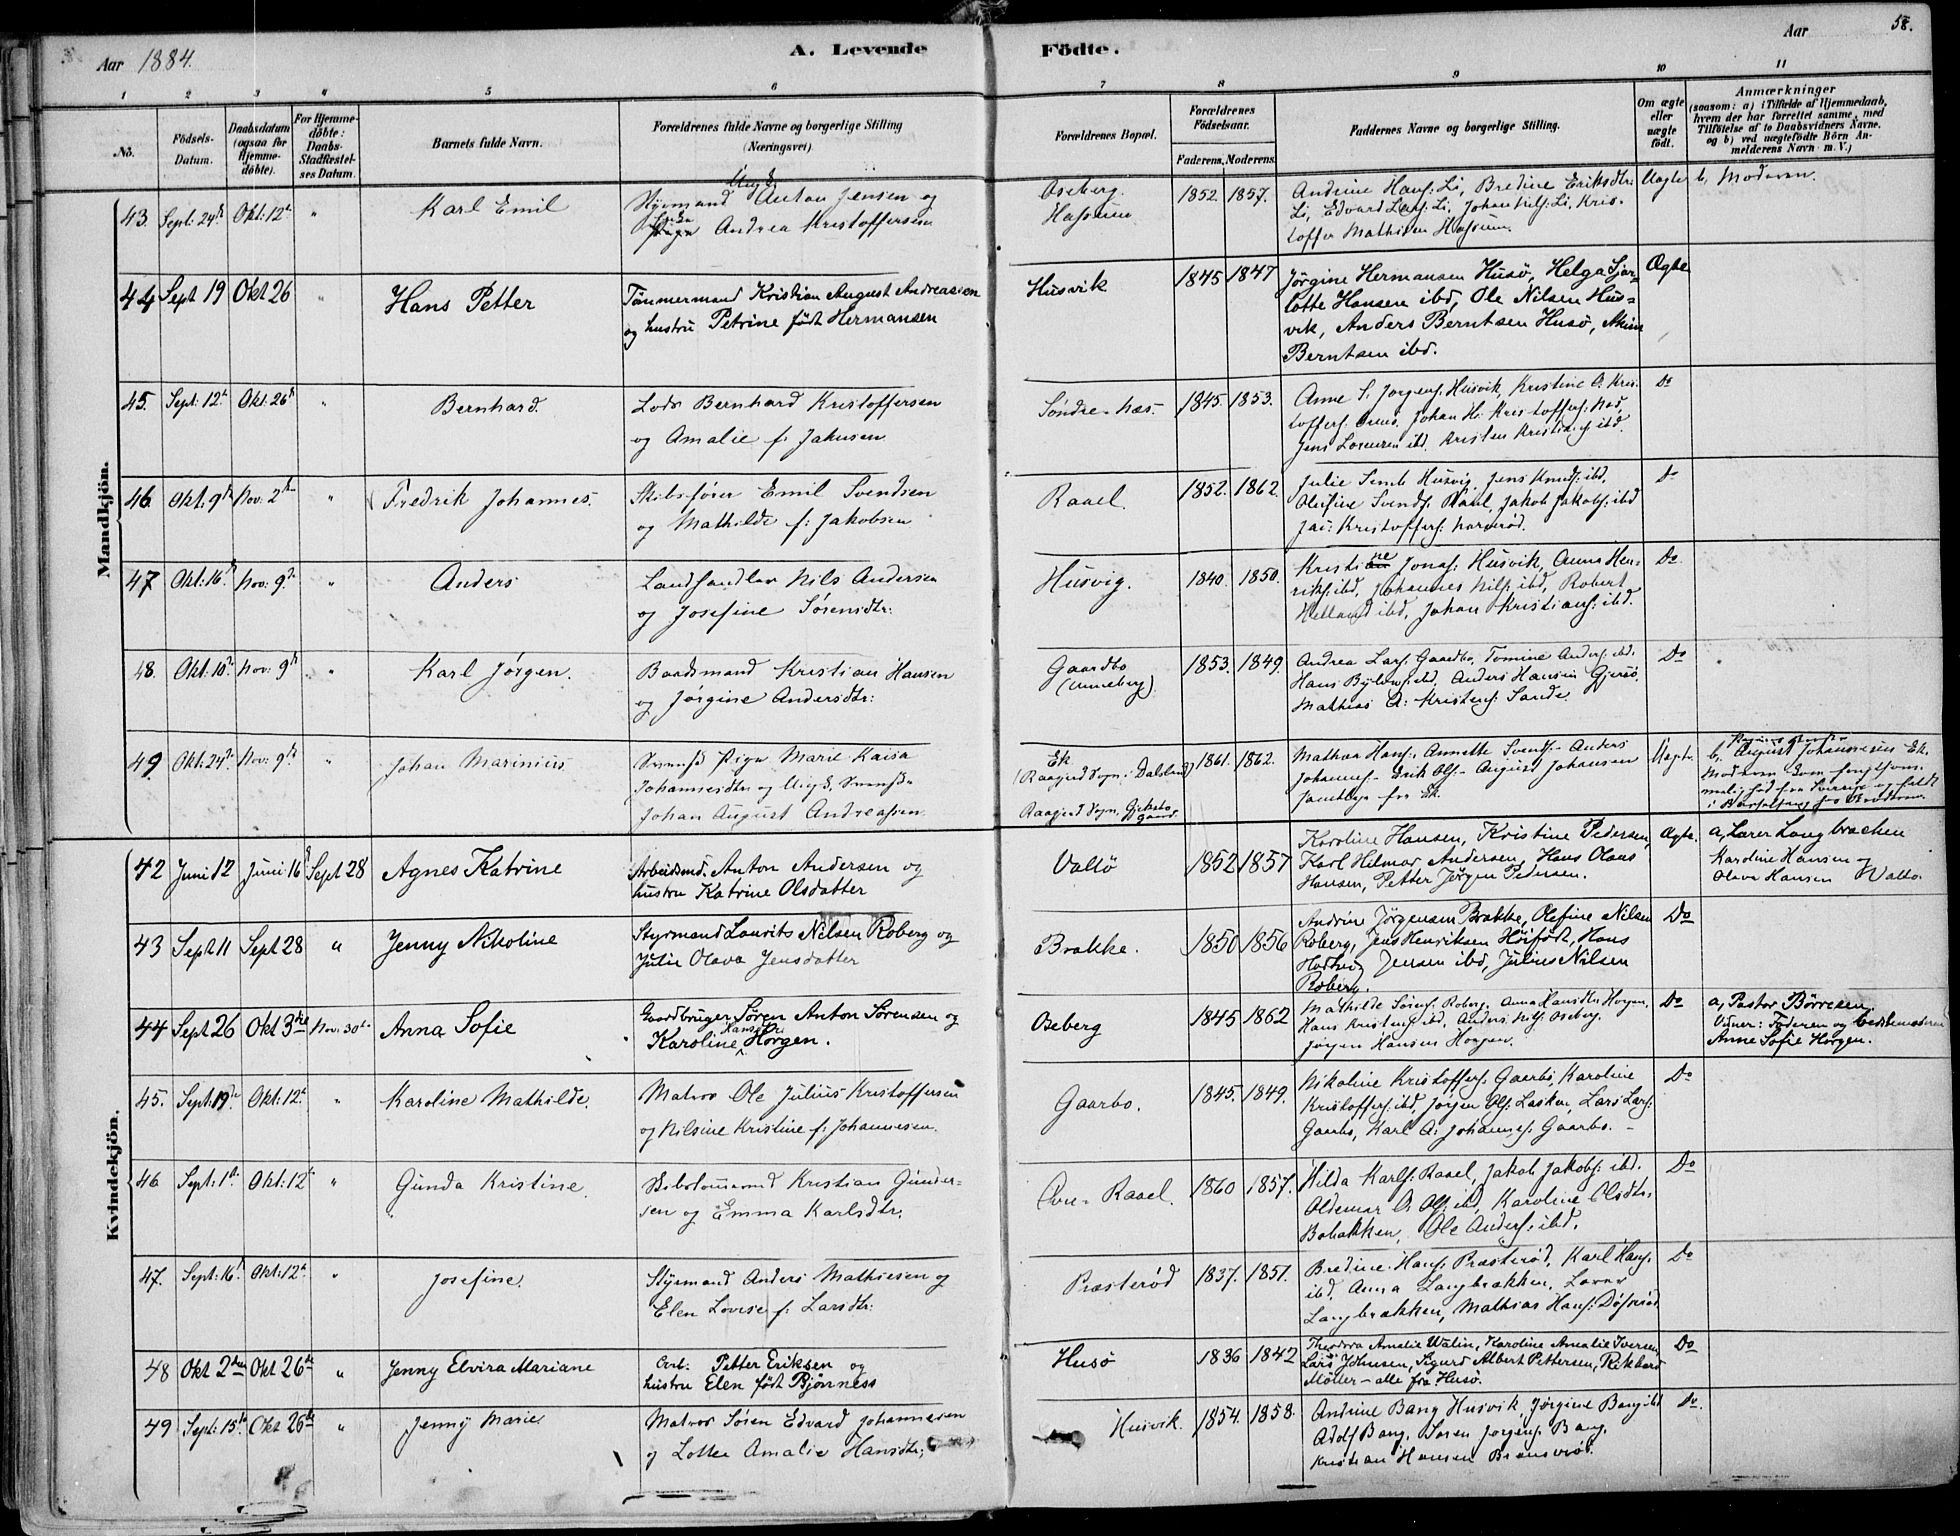 Aar 1884.
A. Levende Födte.
Aar
58.
1 2 3 4 5 6 7 8 9 10 11
No.
Födsels-Datum.
Daabsdatum (ogsaa for Hjemme-döbte).
For Hjemme-döbte: Daabs-Stadfæstel-ses Datum.
Barnets fulde Navn.
Forældrenes fulde Navne og borgerlige Stilling (Næringsvei)
Forældrenes Bopæl.
Forældrenes Födselsaar.
Faderens. Moderens.
Faddernes Navne og borgerlige Stilling.
Om ægte eller uægte födt.
Anmærkninger
(saasom: a) i Tilfælde af Hjemmedaab, hvem der har forrettet samme, med Tilföielse af to Daabsvidners Navne. og b) ved uægtefödte Börn An-melderens Navn m. V.)
Mandkjön.
43. Sept: 24de Okt: 12te " Karl Emil
Ungk. Styrmand Anton Jensen og
Pige Andrea Kristoffersen
Oseberg. Hassum
1852. 1857.
Andrine Hans: Li, Bredine Eriksdtr:
Li, Edvard Lars: Li, Johan Nils: Li, Kris-
toffer Mathisen Hassum.
Uægte b, Moderen.
44 Sept 19 Okt 26 " Hans Petter
Tömmermand Kristian August Andreassen
og hustru Petrine født Hermansen
Husvik 1845 1847
Jørgine Hermansen Husø, Helga Sjar-
lotte Hansen ibd, Ole Nilsen Hus-
vik, Anders Berntsen Husö,
Berntsen ibd.
Ægte
45. Sept: 12te Okt: 26de " Bernhard.
Lods Bernhard Kristoffersen
og Amalie f: Jakusen
Söndre-Næs. 1845. 1853.
Anne S. Jørgens: Husvik, Kristine O. Kris-
toffers: Næs, Johan H: Kristoffers: Næs,
Jens Lorenzen ibd. Kristen Kristians: ibd.
Do
46. Okt: 9de Nov: 2de " Fredrik Johannes.
Skibsfører Emil Svendsen
og Mathilde f: Jakobsen
Raael. 1852. 1862.
Julie Semb Husvig, Jens Knuds: ibd,
Olefine Svends: Raael, Jakob Jakobs: ibd
Jac: Kristoffers: Narverød.
Do
47 Okt: 16de Nov: 9de " Anders
Landhandler Nils Andersen
og Josefine Sörensdtr:
Husvig. 1840. 1850.
Kristine Jonas: Husvik, Anna Hen-
riks: ibd, Johannes Nils: ibd, Robert
Helland ibd, Johan Kristians: ibd.
Do
48. Okt: 10de Nov: 9de Karl Jörgen.
Baadsmand Kristian Hansen
og Jørgine Andersdtr:
Gaardbo (Unneberg) 1853. 1849.
Andrea Lars: Gaardbo, Tomine Anders: ibd.
Hans Bylow: ibd, Anders Hansen Gjersö,
Mathias A: Kristens: Sande.
Do
49 Okt: 24de Nov: 9de " Johan Marinius
Svensk Pige Marie Kaisa
Johannesdtr og Ungk. Svensk
Johan August Andreassen
Ek
(Raagerd Sogn: Dalsland)
Raagerd Sogn,
1861. 1862.
Mathea Hans: Annette Svends- Anders
Johannes- Erik Ols- August Johansen
samtlige fra Ek.
Uægte
b, August Johannesen Ek.
Moderen
fra Sverige
Kvindekjön.
42 Juni 12 Juni 16 Sept 28 Agnes Katrine
Arbeidsmd. Anton Andersen og
hustru Katrine Olsdatter
Vallö 1852 1857
Karoline Hansen, Kristine Pedersen,
Karl Hilmar Andersen, Hans Olaus
Hansen, Petter Jörgen Pedersen.
Ægte.
a, Lærer Langbrachen
Karoline Hansen og
Olava Hansen Vallö.
43 Sept 11 Sept 28 " Jenny Nikoline
Styrmand Laurits Nilsen Roberg og
Julie Olava Jensdatter
Brakke. 1850 1856
Andrine Jörgensen Brakke, Olefine Nilsen
Roberg, Jens Henriksen Höifödt, Hans
Hedevig Jensen ibd, Julius Nilsen
Roberg.
Do
44 Sept 26 Okt 3die Nov: 30te Anna Sofie
Gaardbruger Sören Anton Sörensen og
Karoline Hansdtr: Horgen.
Oseberg 1845 1862
Mathilde Sörens: Roberg, Anna Hansdtr Horgen,
Hans Kristens: ibd, Anders Nils: Oseberg,
Jørgen Hansen Horgen.
Do
a, Pastor Börresen
Vidner: Faderen og Bedstemoderen
Anne Sofie Horgen.
45. Sept: 19de Okt: 12te " Karoline Mathilde.
Matros Ole Julius Kristoffersen
og Nilsine Kristine f: Johannesen.
Gaarbo. 1845. 1849.
Nikoline Kristoffers: Gaarbo, Karoline
Kristoffers: ibd, Jørgen Ols: Lasken, Lars Lars:
Gaarbo, Karl A: Johannes: Gaarbo.
Do
46 Sept: 1ste Okt: 12te " Gunda Kristine.
Skibstömmermd Kristian Gunder-
sen og Emma Karlsdtr.
Övre-Raael. 1860 1857.
Hilda Karls: Raael, Jakob Jakobs: ibd.
Oldemar O: Ols: ibd, Karoline Olsdtr:
Bohakken, Ole Anders: ibd.
Do
47. Sept: 16de Okt: 12te " Josefine.
Styrmand Anders Mathisen og
Elen Lovise f: Larsdtr:
Præsterød 1837. 1851.
Bredine Hans: Præsterød, Karl Hans:
ibd. Anna Langbrakken, Lærer
Langbrakken, Mathias Hans:
Do
48 Okt 2den Okt 26de " Jenny Elvira Mariane
Arb: Petter Eriksen og
hustru Elen født Bjönness
Husö 1836 1842
Theodora Amalie Walin, Karoline Amalie Iversen,
Lars Johnsen, Sigurd Albert Pettersen, Rikhard
Möller - alle fra Husö.
Do
49 Sept: 15de Okt 26de " Jenny Marie
Matros Sören Edvard Johannesen
og Lotte Amalie Hansdtr:
Husvik. 1854. 1858.
Andrine Bang Husvik, Jørgine Bang ibd
Adolf Bang, Sören Jørgens: Bang,
Kristian Hansen
Do